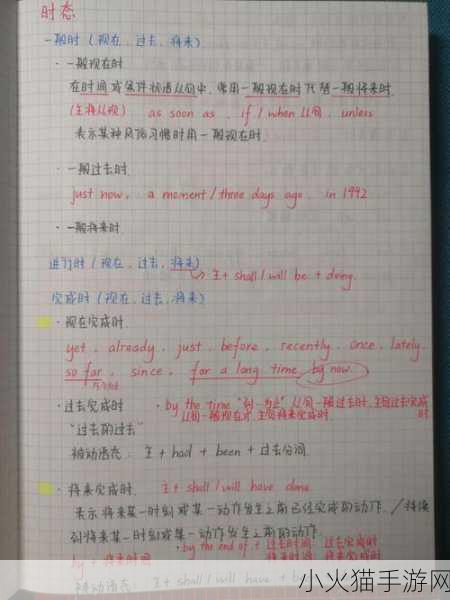 时态
一般时(现在、过去、将来)
· 一般现在时
在时间或条件状语从句中,常用一般现在时代替一般将来时.
(主将从现) as soon as 、if / when 从句、unless
表示某种风俗习惯时用一般现在时.
· 一般过去时.
just now、a moment / three days ago、in 1992
· 一般将来时.
进行时(现在、过去、将来)
主+ shall / will be + doing.
完成时(现在、过去、将来)
· 现在完成时.
yet、already、just、before、recently、once、lately.
so far、since、for a long time、by now.
· 过去完成时 · by the time "到…为止" 从句一般过去时,主句过去完成时
"过去的过去" 从句一般现在时,主句将来完成时.
被动语态: 主 + had + been + 过去分词.
· 将来完成时. 主+ shall / will have done.
表示将来某一时刻或某一动作发生之前已经完成的动作./持续
到将来某一时刻或某一动作发生之前的动作.
· by the end of + 过去时间: 过去完成时
by + 将来时间 将来时间: 将来完成时
被动语态: 主+ shall / will have + b
小火猫手游网